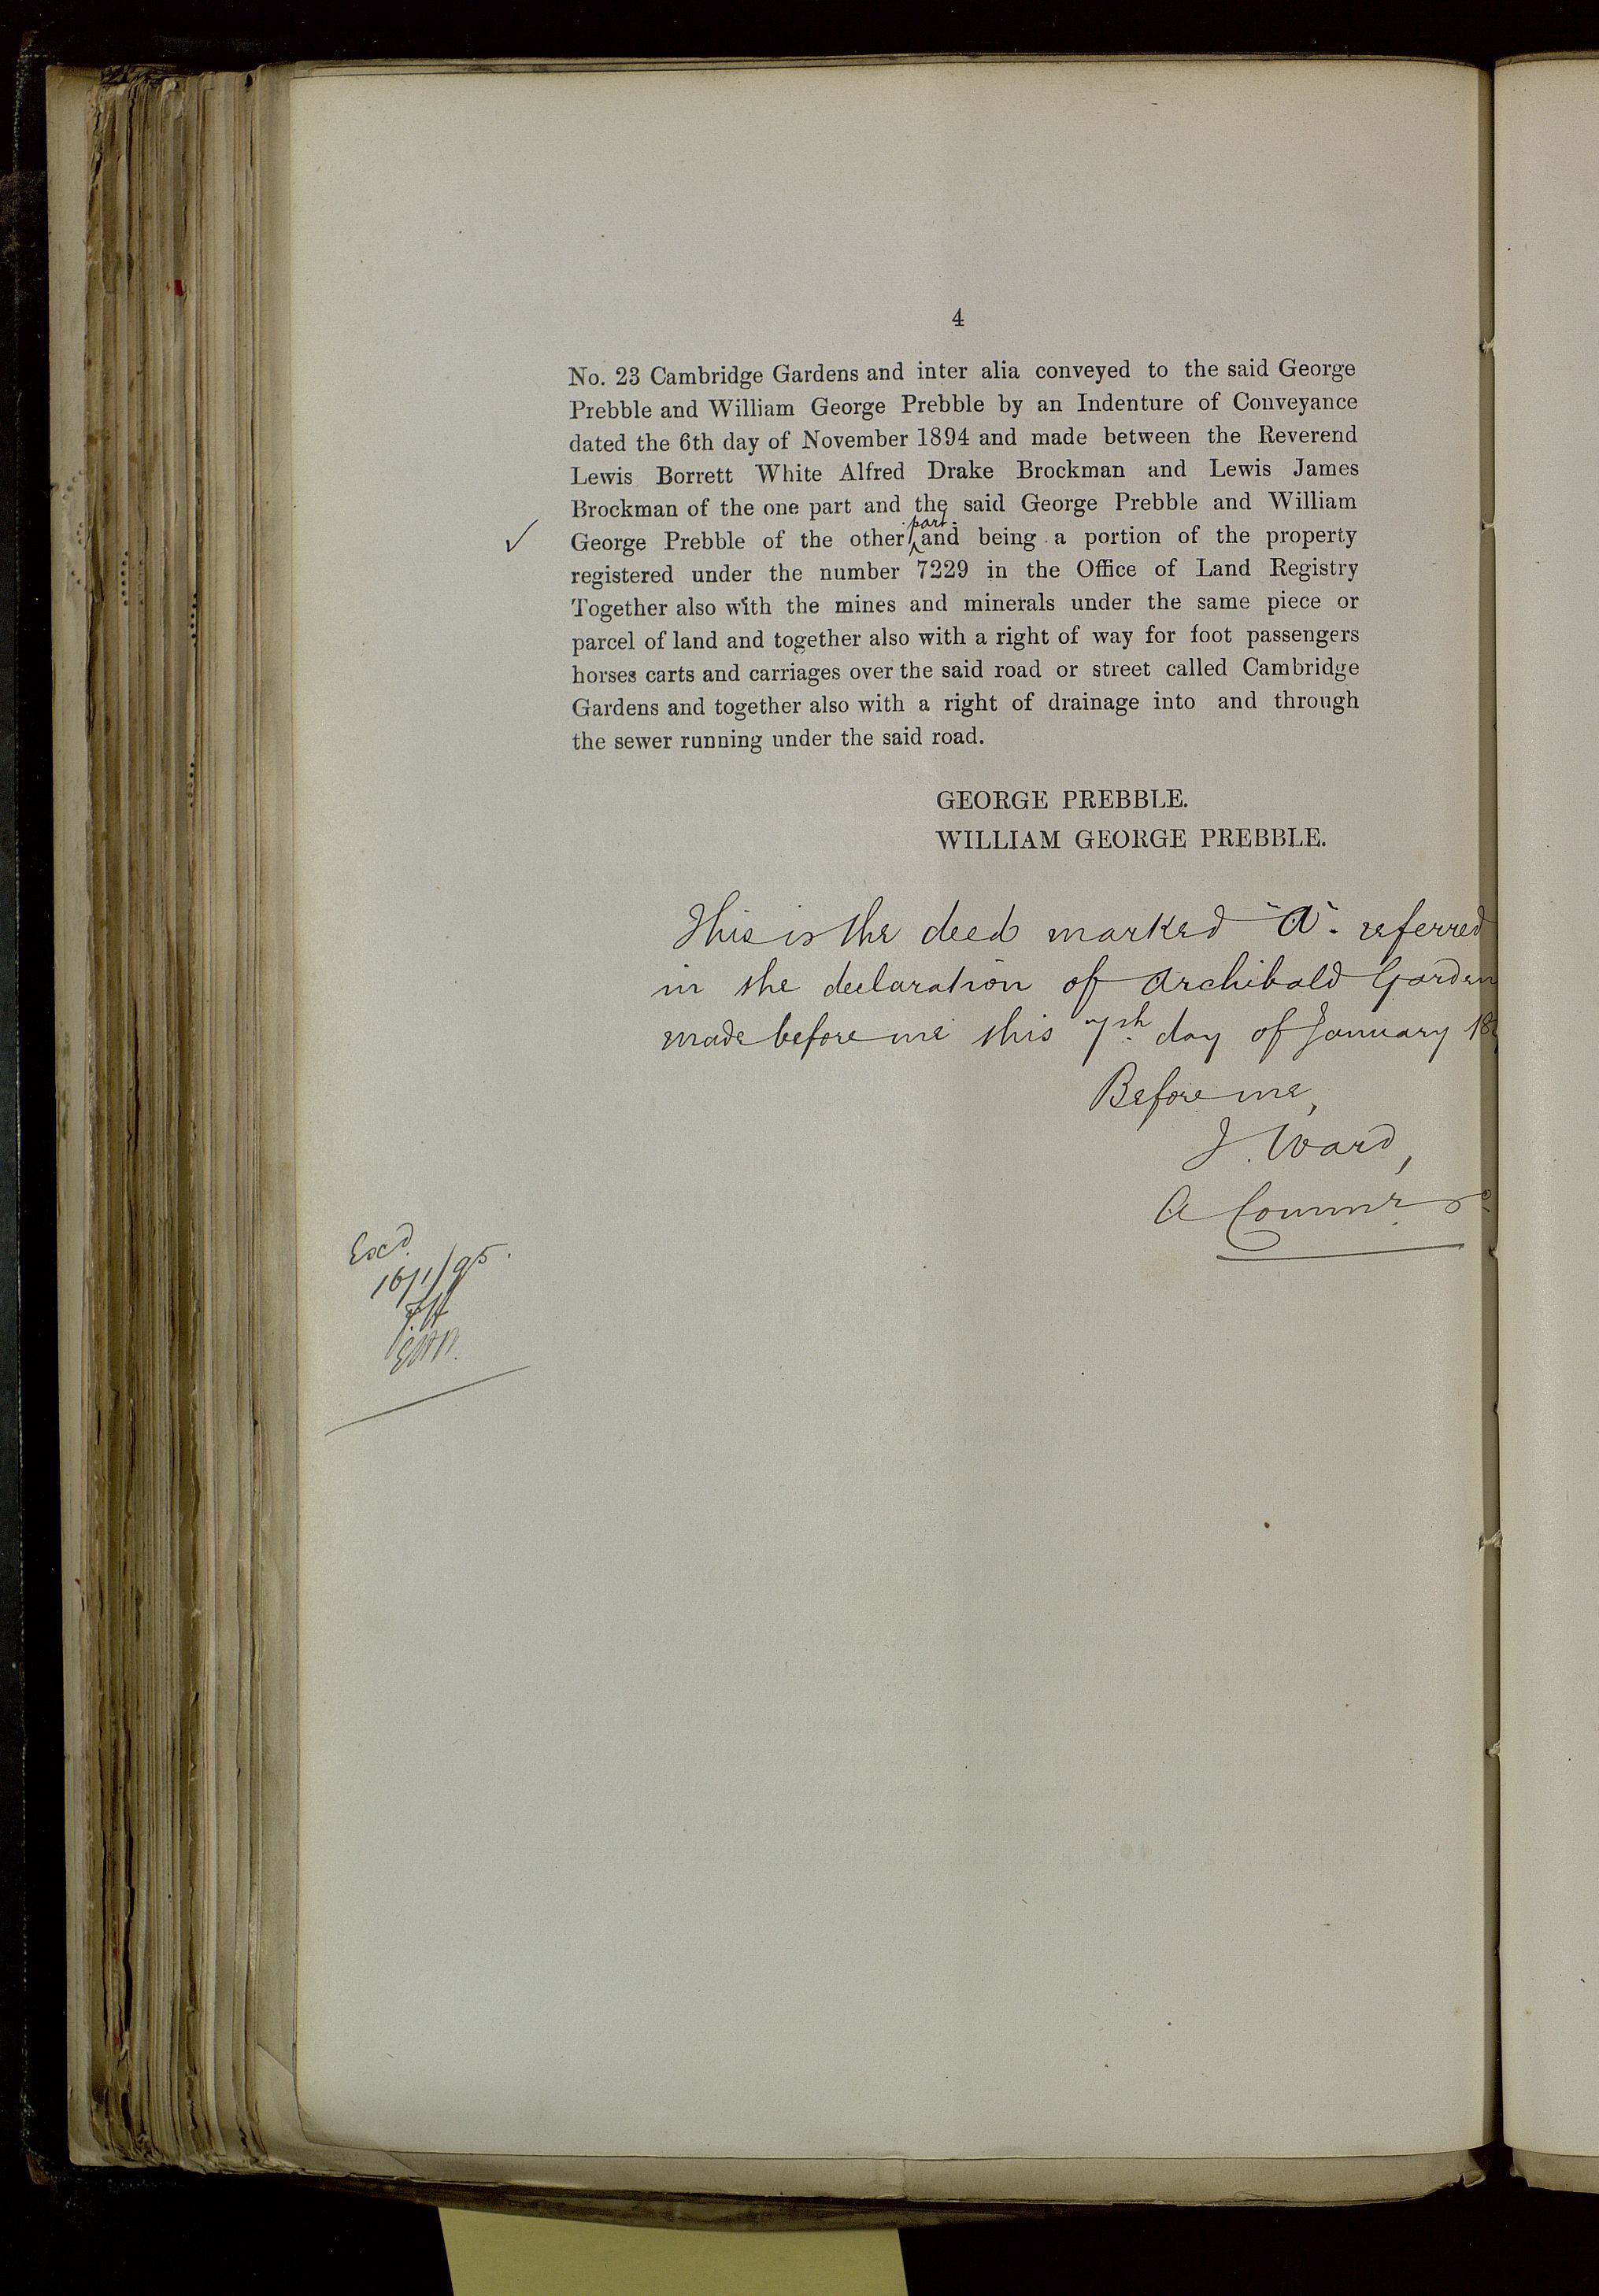 4
No. 23 Cambridge Gardens and inter alia conveyed to the said George
Prebble and William George Prebble by an Indenture of Conveyance
dated the 6th day of November 1894 and made between the Reverend
Lewis Borrett White Alfred Drake Brockman and Lewis James
Brockman of the one part and the said George Prebble and William
part
George Prebble of the other and being a portion of the property
registered under the number 7229 in the Office of Land Registry
Together also with the mines and minerals under the same piece or
parcel of land and together also with a right of way for foot passengers
horses carts and carriages over the said road or street called Cambridge
Gardens and together also with a right of drainage into and through
the sewer running under the said road.
GEORGE PREBBLE.
WILLIAM GEORGE PREBBLE.
This is the deed marked "A". referred
in the declaration of Archibald Garden
made before me this 7th. day of January 18
Before me,
J. Ward,
A Commr.
Exd.
16/1/95.